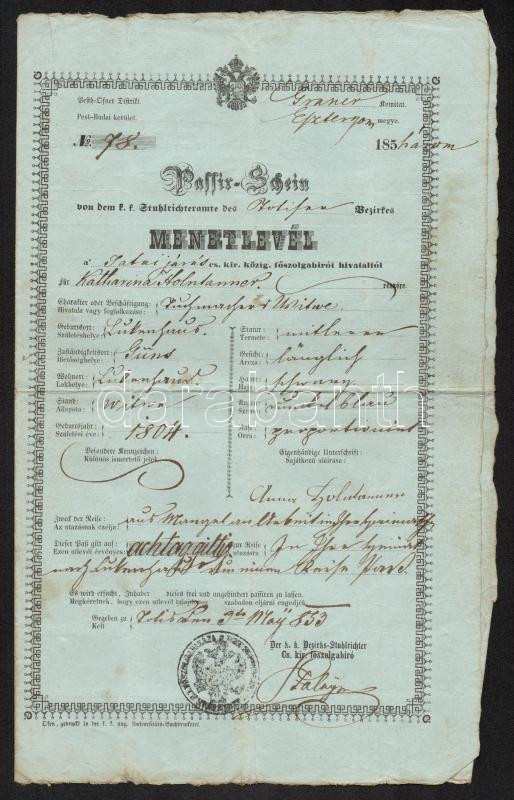 Pesth-Ofner Distrikt. Graner Komitat.
Pest-Budai kerület. Esztergom megye.
No. 78. 185 három
Passir-Schein
von dem k. k. Stuhlrichteramte des Totiser Bezirkes
MENETLEVÉL
a' Tatai járás cs. kir. közig. főszolgabirói hivataltól
für Katharina Holntanner. részére.
Charakter oder Beschäftigung: Tuchmachers Witwe
Hivatala vagy foglalkozása:
Geburtsort: Lukenhaus.
Születéshelye:
Zuständigkeitsort: Güns
Illetőséghelye:
Wohnort: Lukenhaus.
Lakhelye:
Stand: Witwe
Állapota:
Geburtsjahr: 1804.
Születési éve:
Besondere Kennzeichen:
Különös ismertető jelek:
Statur: mittlerer
Termete:
Gesicht: länglich
Arcza:
Haare: schwarz
Haja:
Augen: dunkelblau
Szemei:
Nase: proportionirt
Orra:
Eigenhändige Unterschrift:
Sajátkezű aláirása:
Anna Holntanner
Zweck der Reise: aus Mangel an
Az utazásnak czélja:
Dieser Paß gilt auf: achttag giltig zur Reise: In Ihre
Ezen utlevél érvényes: utazásra
nach Lukenhaus
Es wird ersucht, Inhaber dieses frei und ungehindert passiren zu lassen.
Megkéretnek, hogy ezen utlevél tulajdonosa szabadon eljárni engedjék.
Gegeben zu Totis den 9ten May 853
Költ
Der k. k. Bezirks-Stuhlrichter
Cs. kir. főszolgabiró
Ofen, gedruckt in der k. k. ung. Universitäts-Buchdruckerei.
darabanth